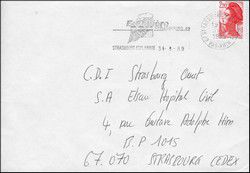 STRASBOURG
31-8-89
C.D.I Strasbourg Ouest
S.A Elsau Hôpital Civil
4, rue Gustave Adolphe Hirn
B.P 1015
67.070 STRASBOURG CEDEX